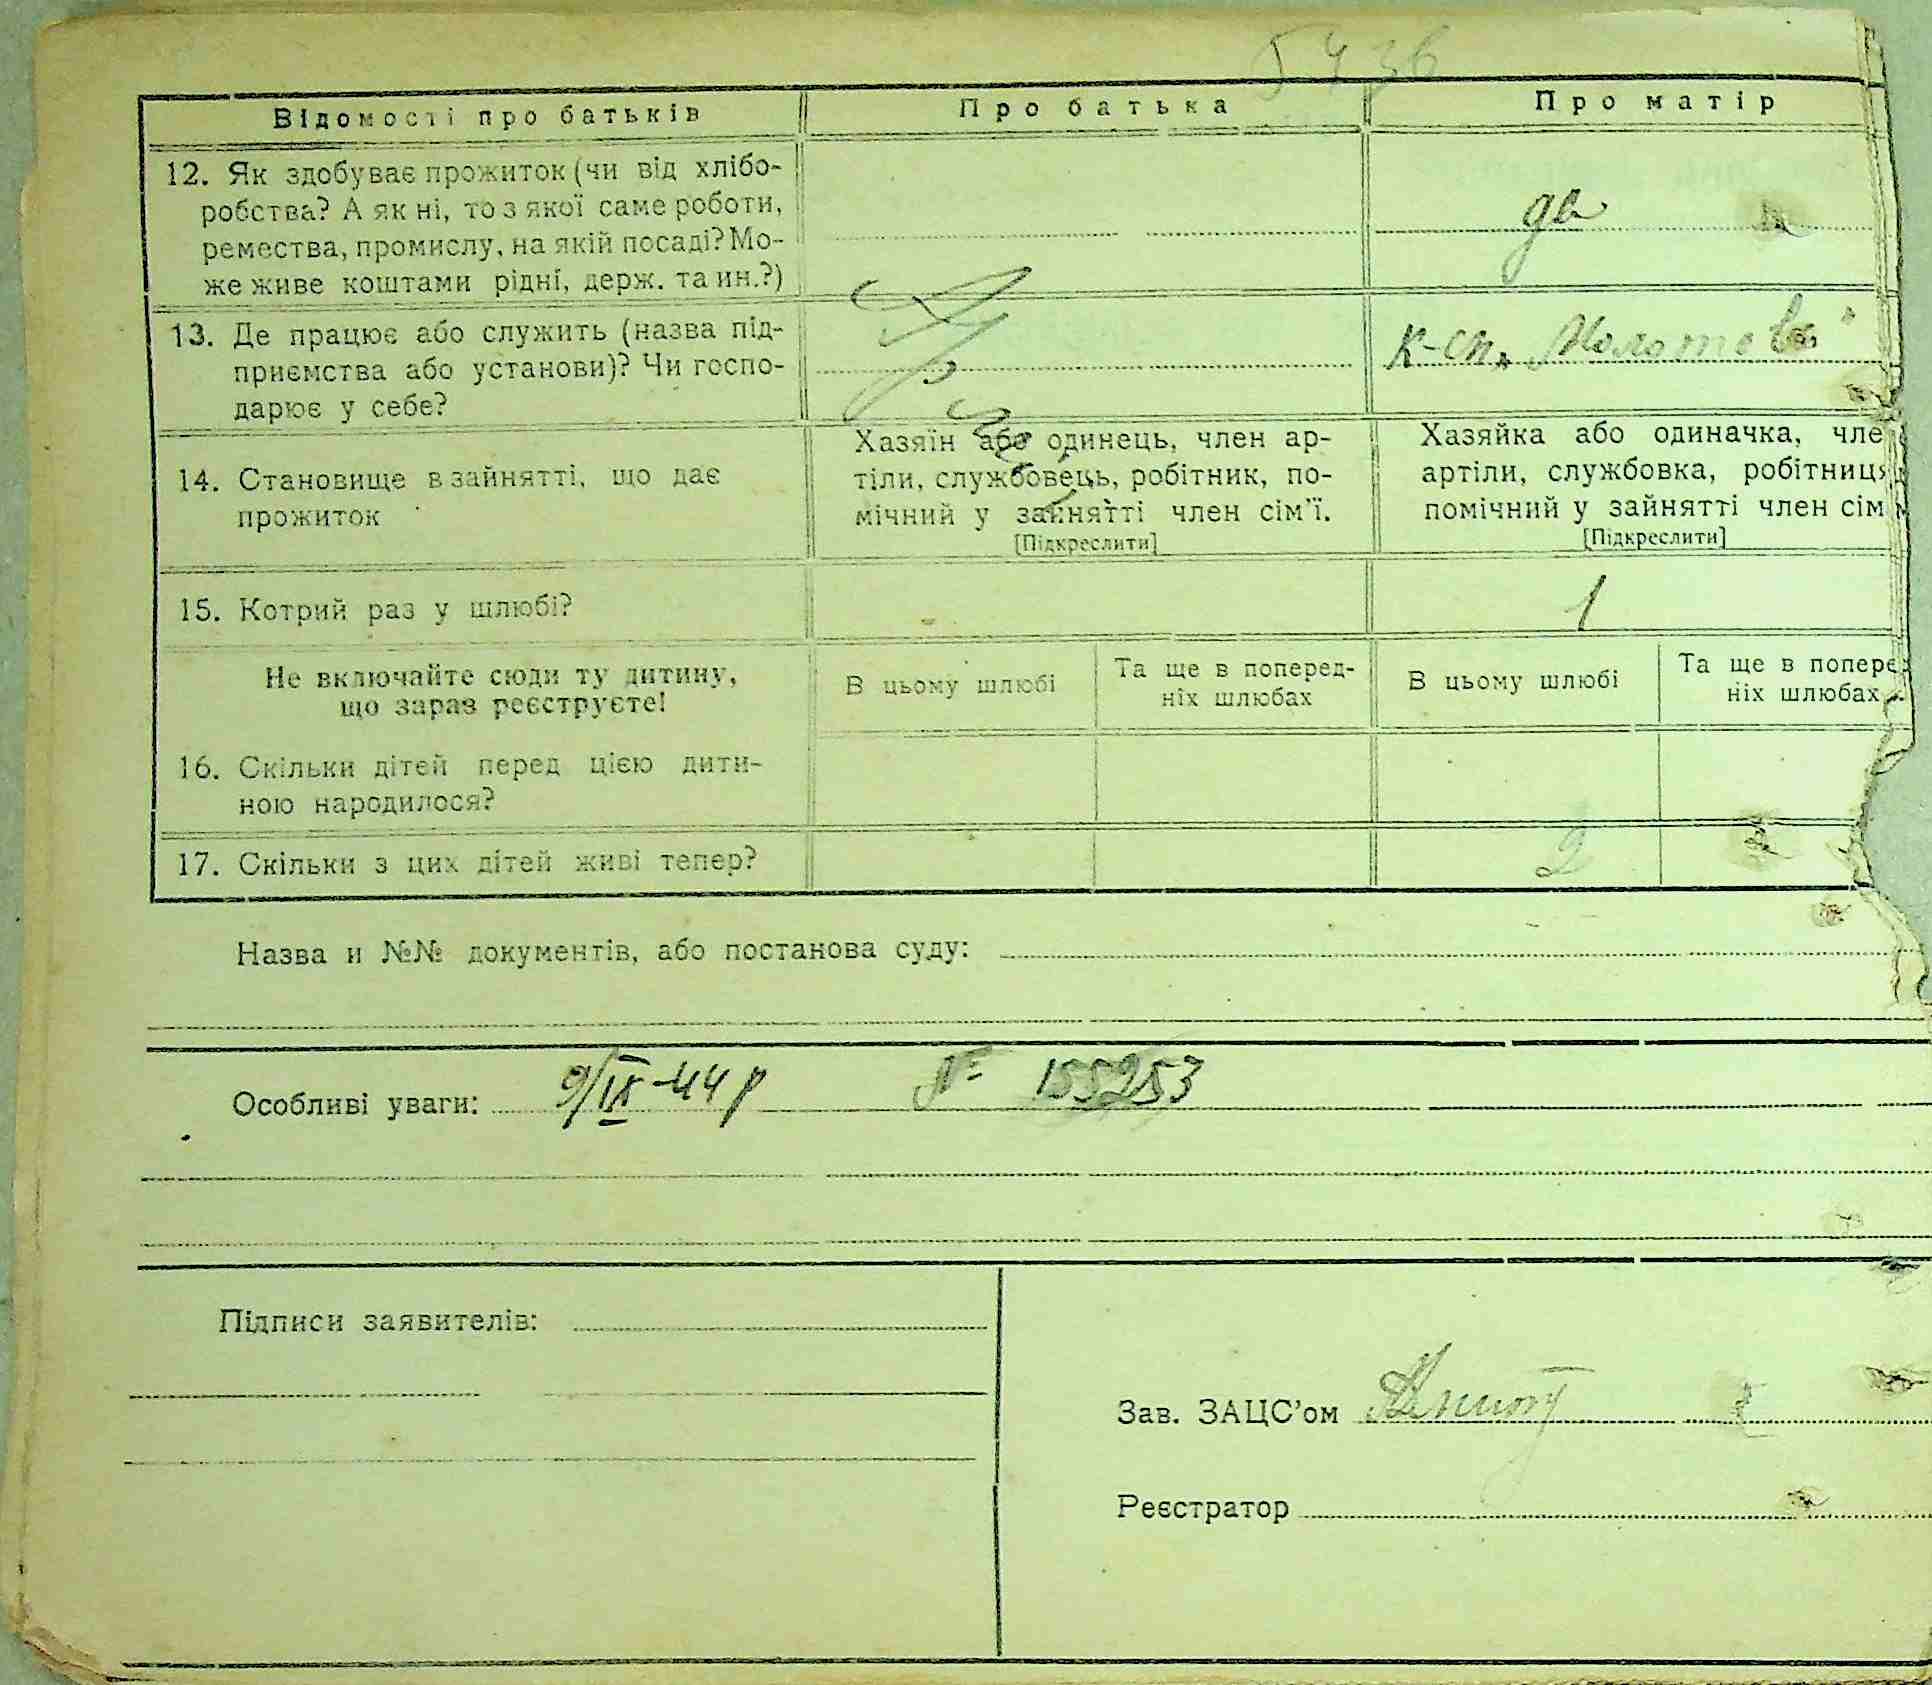 5436
Відомості про батьків
Про батька
Про матір
12. Як здобуває прожиток (чи від хлібо-
робства? А як ні, то з якої саме роботи,
ремества, промислу, на якій посаді? Мо-
же живе коштами рідні, держ. та ин.?)
13. Де працює або служить (назва під-
приємства або установи)? Чи госпо-
дарює у себе?
к-сп „Молотова"
14. Становище в зайнятті, що дає
прожиток
Хазяїн або одинець, член ар-
тіли, службовець, робітник, по-
мічний у зайнятті член сім'ї.
[Підкреслити]
Хазяйка або одиначка, чле
артіли, службовка, робітниця
помічний у зайнятті член сім
[Підкреслити]
15. Котрий раз у шлюбі?
1
Не включайте сюди ту дитину,
що зараз реєструєте!
В цьому шлюбі
Та ще в поперед-
ніх шлюбах
В цьому шлюбі
Та ще в попере
ніх шлюбах
16. Скільки дітей перед цією дити-
ною народилося?
17. Скільки з цих дітей живі тепер?
2
Назва и №№ документів, або постанова суду:
Особливі уваги: 9/IX-44 р № 155253
Підписи заявителів:
Зав. ЗАЦС'ом
Реєстратор